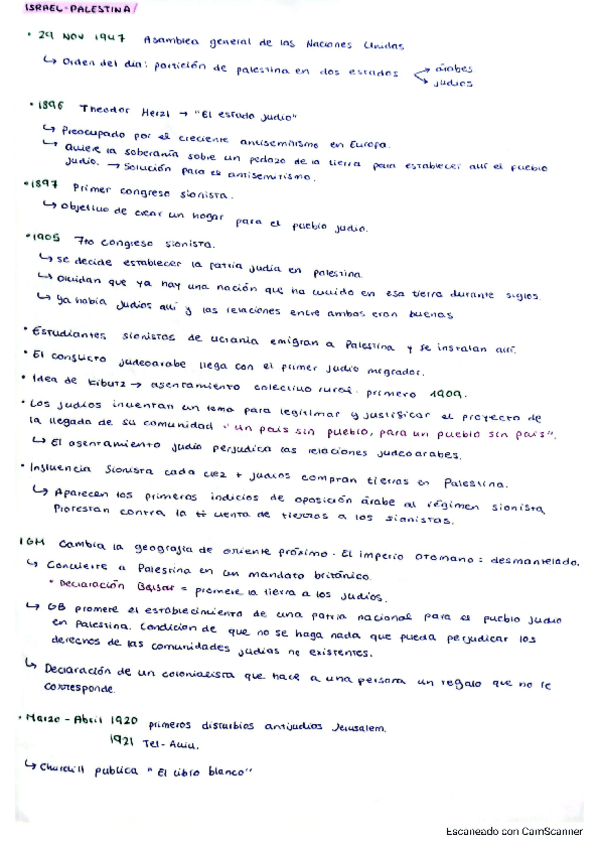 ISRAEL-PALESTINA/
• 29 NOV 1947 Asamblea general de las Naciones Unidas
↳ Orden del día: partición de palestina en dos estados árabes
judíos
• 1896 Theodor Herzl → "El estado judío"
↳ Preocupado por el creciente antisemitismo en Europa.
↳ Quiere la soberanía sobre un pedazo de la tierra para establecer allí el pueblo
judío. → Solución para el antisemitismo.
• 1897 Primer congreso sionista.
↳ Objetivo de crear un hogar para el pueblo judío.
• 1905 7mo congreso sionista.
↳ se decide establecer la patria judía en palestina.
↳ Olvidan que ya hay una nación que ha vivido en esa tierra durante siglos.
↳ Ya había judíos allí y las relaciones entre ambos eran buenas
• Estudiantes sionistas de ucrania emigran a Palestina y se instalan allí.
• El conflicto judeoarabe llega con el primer judío migrador.
• Idea de Kibutz → asentamiento colectivo rural. primero 1909.
• Los judíos inventan un lema para legitimar y justificar el proyecto de
la llegada de su comunidad = "un país sin pueblo, para un pueblo sin país".
↳ El asentamiento judío perjudica las relaciones judeoarabes.
• Influencia Sionista cada vez + judíos compran tierras en Palestina.
↳ Aparecen los primeros indicios de oposición árabe al régimen sionista
Protestan contra la venta de tierras a los sionistas.
IGM Cambia la geografía de oriente próximo. El imperio Otomano = desmantelado.
↳ Convierte a Palestina en un mandato británico.
* Declaración Balfour = promete la tierra a los judíos.
↳ GB promete el establecimiento de una patria nacional para el pueblo judío
en Palestina. Condición de que no se haga nada que pueda perjudicar los
derechos de las comunidades judías no existentes.
↳ Declaración de un colonialista que hace a una persona un regalo que no le
corresponde.
• Marzo - Abril 1920 primeros disturbios antijudíos Jerusalem.
1921 Tel-Aviv.
↳ Churchill publica "El libro blanco"
Escaneado con CamScanner